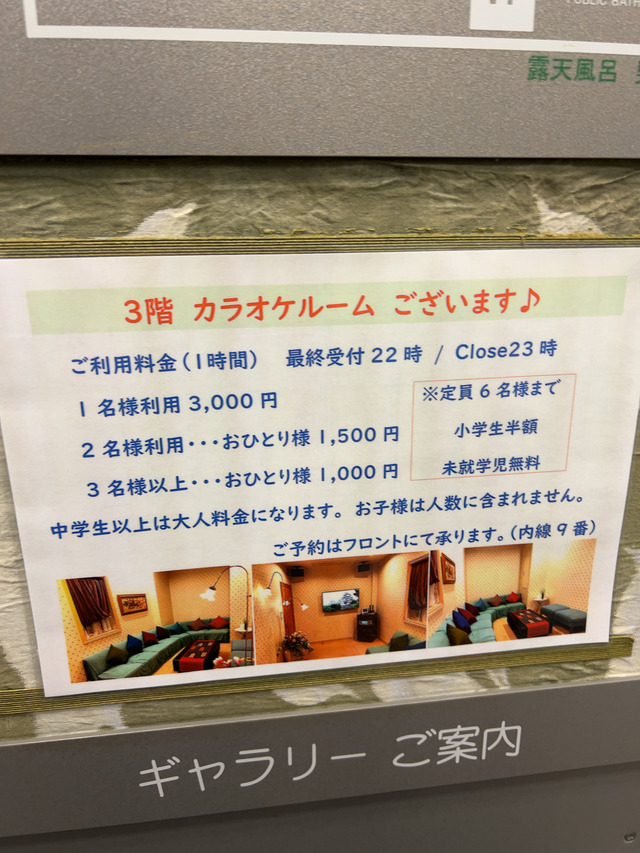 PUBLIC BATH
露天風呂
3階 カラオケルーム ございます♪
ご利用料金(1時間) 最終受付22時 / Close23時
1名様利用3,000円
2名様利用・・・おひとり様1,500円
3名様以上・・・おひとり様1,000円
※定員6名様まで
小学生半額
未就学児無料
中学生以上は大人料金になります。お子様は人数に含まれません。
ご予約はフロントにて承ります。(内線9番)
ギャラリー ご案内